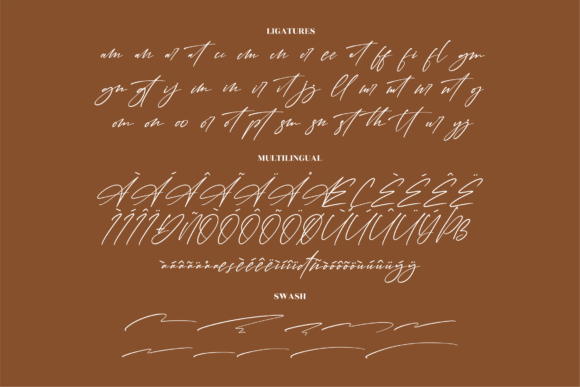 LIGATURES
am an ar at ci em en er ee et ff fi fl gm
gn gt ij im in ir it jj ll mr mt wr wt
om on oo or ot pt sm sn st th tt ur yj
MULTILINGUAL
ÀÁÂÃÄÅÆÇÈÉÊË
ÌÍÎÏÐÑÒÓÔÕÖØÙÚÛÜÝÞß
àáâãäåæçèéêëìíîïðñòóôõöùúûüýÿ
SWASH